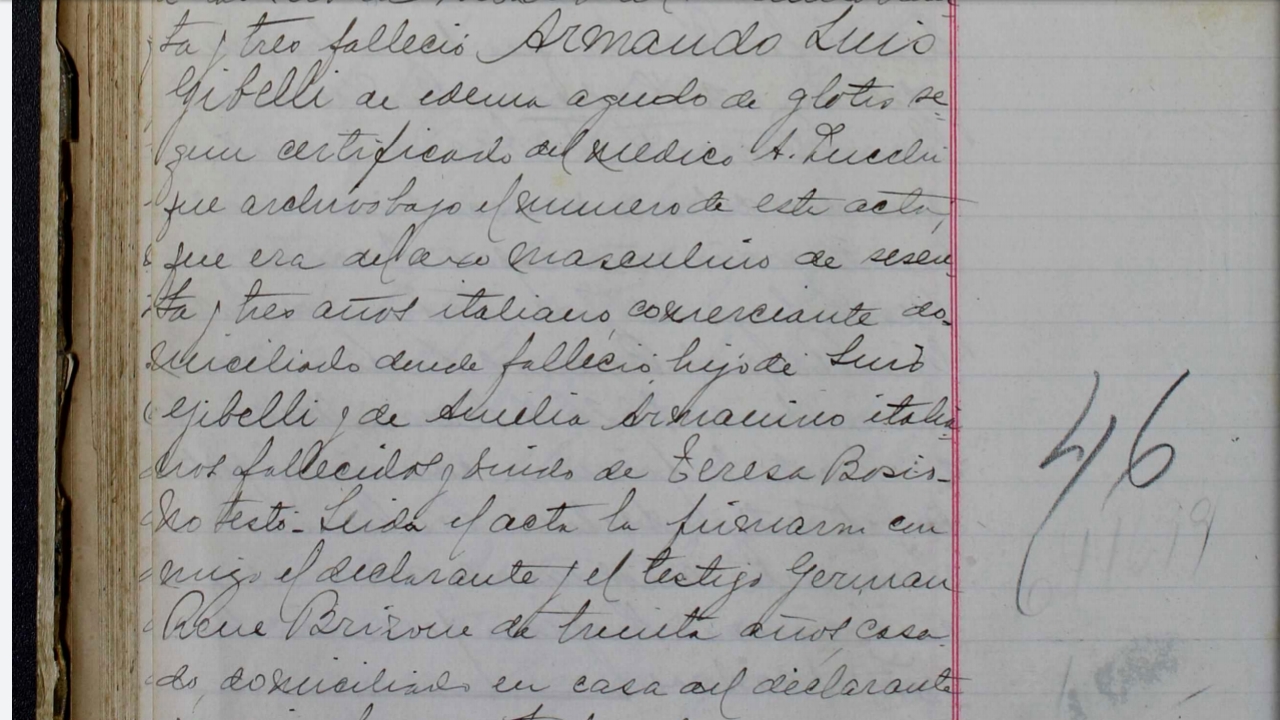 ta y tres falleció Armando Luis
Gibelli de edema agudo de glotis se-
gun certificado del medico A. Zucchi
que archivo bajo el numero de este acta,
que era del sexo masculino de sesen-
ta y tres años italiano, comerciante do-
miciliado donde falleció hijo de Luis
Gibelli y de Amelia Armanino italia
nos fallecidos y viudo de Teresa Bosio-
No testó- Leida el acta la firmaron con
migo el declarante y el testigo German
Rene Brizone de treinta años, casa
do, domiciliado en casa del declarante
46